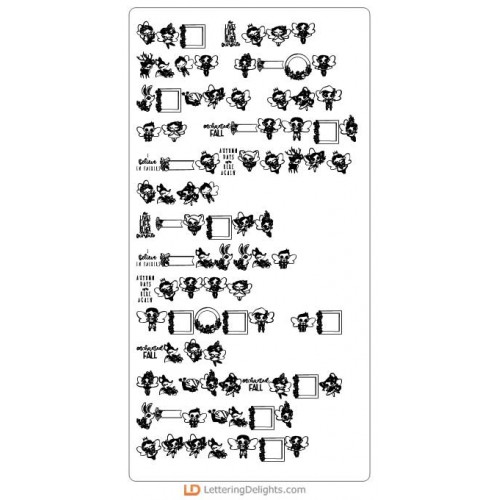 enchanted FALL
I Believe IN FAIRIES
AUTUMN DAYS are HERE AGAIN
I Believe IN FAIRIES
AUTUMN DAYS are HERE AGAIN
enchanted FALL
enchanted FALL
LD LetteringDelights.com